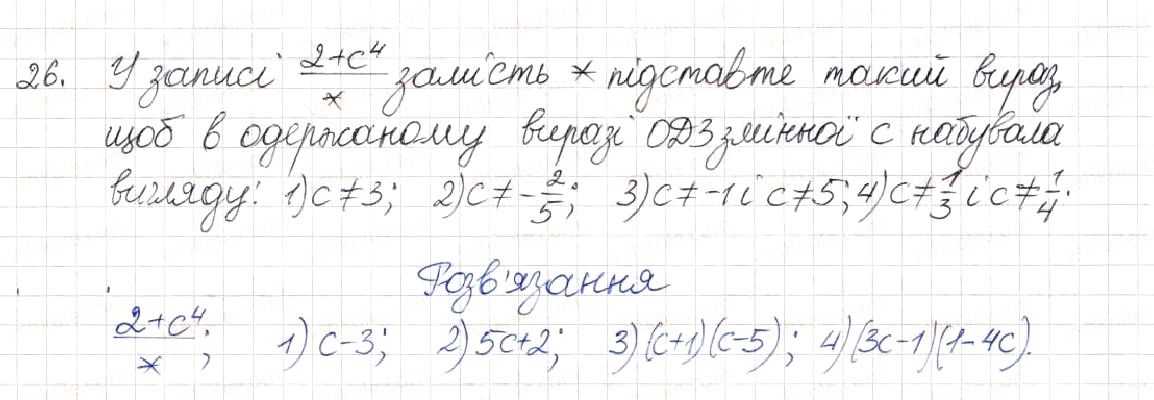 26. У записі (2+c⁴)/* замість * підставте такий вираз,
щоб в одержаному виразі ОДЗ змінної с набувала
вигляду: 1) c≠3; 2) c≠-2/5; 3) c≠-1 і c≠5; 4) c≠1/3 і c≠1/4.
Розв'язання
(2+c⁴)/*; 1) c-3; 2) 5c+2; 3) (c+1)(c-5); 4) (3c-1)(1-4c).